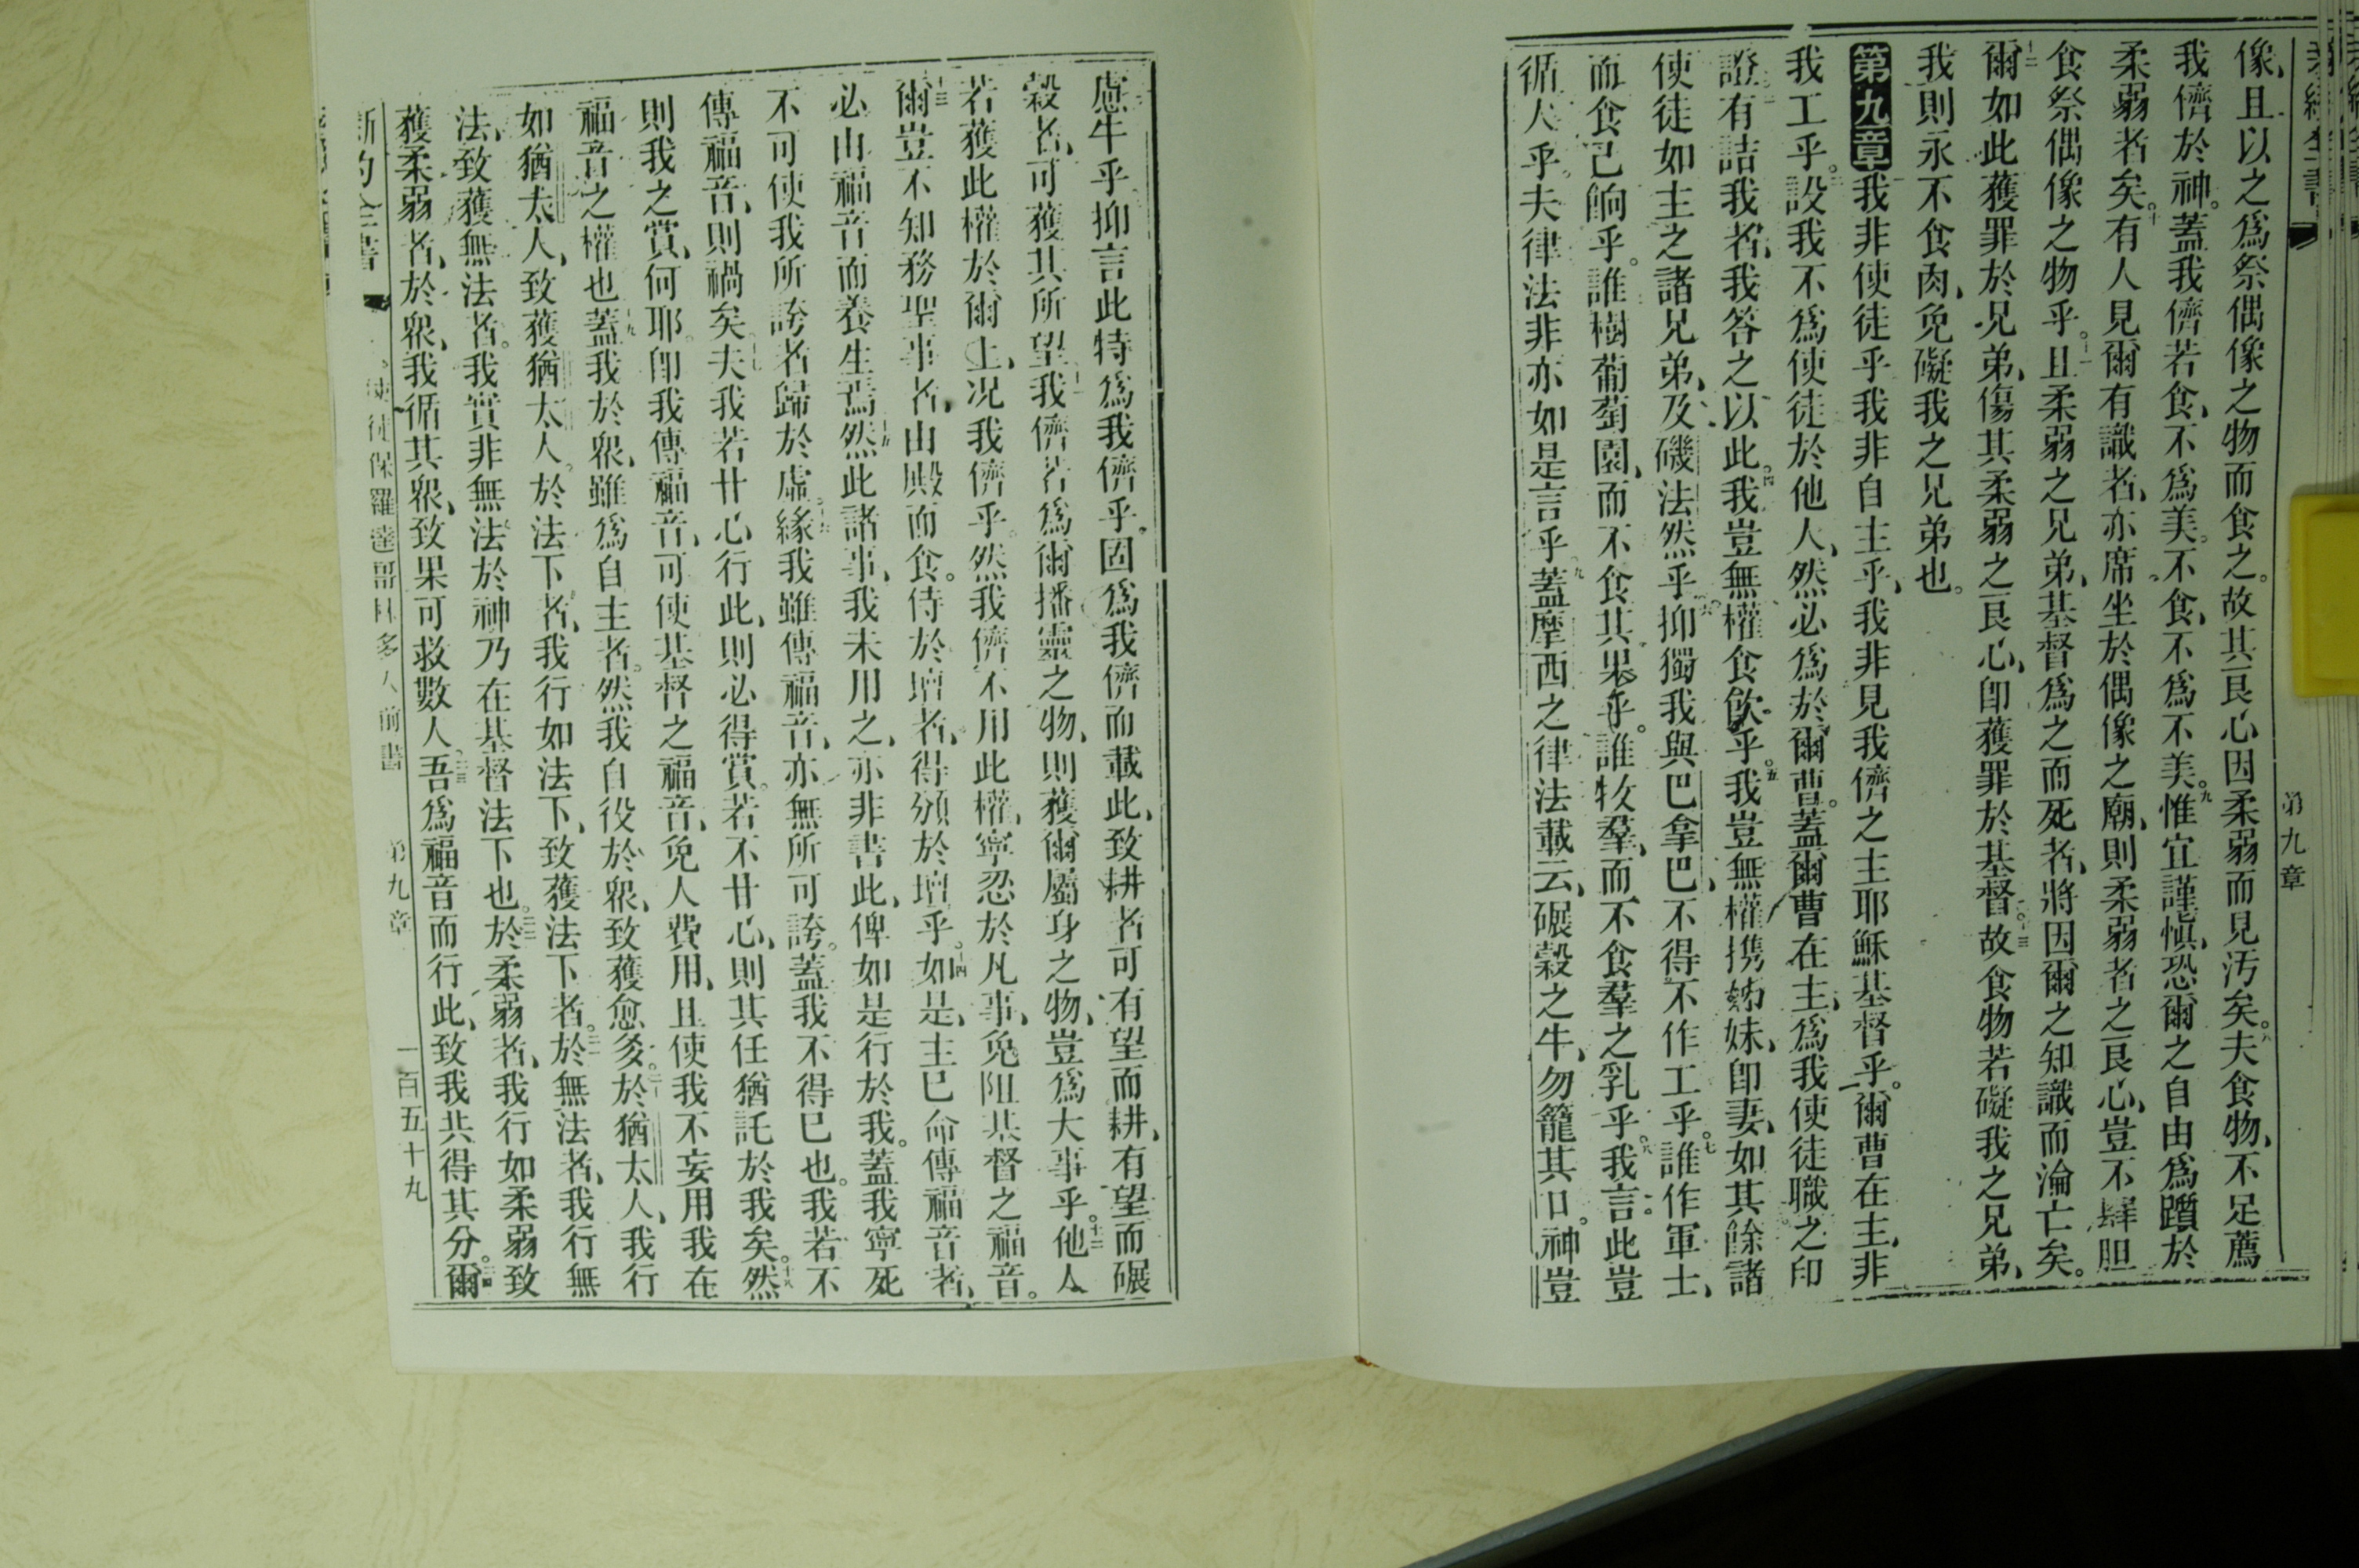 第九章
像、且以之爲祭偶像之物而食之。故其良心因柔弱而見汚矣。八夫食物、不足薦
我儕於神。蓋我儕若食、不爲美。不食、不爲不美。九惟宜謹愼、恐爾之自由爲躓於
柔弱者矣。十有人見爾有識者、亦席坐於偶像之廟、則柔弱者之良心、豈不肆胆
食祭偶像之物乎。十一且柔弱之兄弟、基督爲之而死者、將因爾之知識而淪亡矣。
十二爾如此獲罪於兄弟、傷其柔弱之良心、卽獲罪於基督。十三故食物若礙我之兄弟、
我則永不食肉、免礙我之兄弟也。
第九章我非使徒乎、我非自主乎、我非見我儕之主耶穌基督乎。爾曹在主、非
我工乎。二設我不爲使徒於他人、然必爲於爾曹。蓋爾曹在主、爲我使徒職之印
證。三有詰我者、我答之以此。四我豈無權食飲乎。五我豈無權携姊妹、卽妻、如其餘諸
使徒如主之諸兄弟、及磯法然乎。六抑獨我與巴拿巴、不得不作工乎。七誰作軍士、
而食己餉乎。誰樹葡萄園、而不食其果乎。誰牧羣、而不食羣之乳乎。八我言此豈
循人乎。夫律法非亦如是言乎。九蓋摩西之律法載云、碾穀之牛、勿籠其口。神豈
慮牛乎。十抑言此特爲我儕乎。固爲我儕而載此、致耕者可有望而耕、有望而碾
穀者、可獲其所望。十一我儕若爲爾播靈之物、則獲爾屬身之物、豈爲大事乎。十二他人
若獲此權於爾上、况我儕乎。然我儕不用此權、寧忍於凡事、免阻基督之福音。
十三爾豈不知務聖事者、由殿而食。侍於壇者、得頒於壇乎。十四如是、主已命傳福音者、
必由福音而養生焉。十五然此諸事、我未用之、亦非書此、俾如是行於我。蓋我寧死
不可使我所誇者歸於虛。十六緣我雖傳福音、亦無所可誇。蓋我不得已也。我若不
傳福音、則禍矣。十七夫我若甘心行此、則必得賞。若不甘心、則其任猶託於我矣。十八然
則我之賞、何耶。卽我傳福音、可使基督之福音、免人費用、且使我不妄用我在
福音之權也。十九蓋我於衆、雖爲自主者。然我自役於衆、致獲愈多。二十於猶太人、我行
如猶太人、致獲猶太人。於法下者、我行如法下、致獲法下者。二一於無法者、我行無
法、致獲無法者。我實非無法於神、乃在基督法下也。二二於柔弱者、我行如柔弱致
獲柔弱者、於衆、我循其衆、致果可救數人。二三吾爲福音而行此、致我共得其分。二四爾
新約全書 使徒保羅達哥林多人前書 第九章 一百五十九